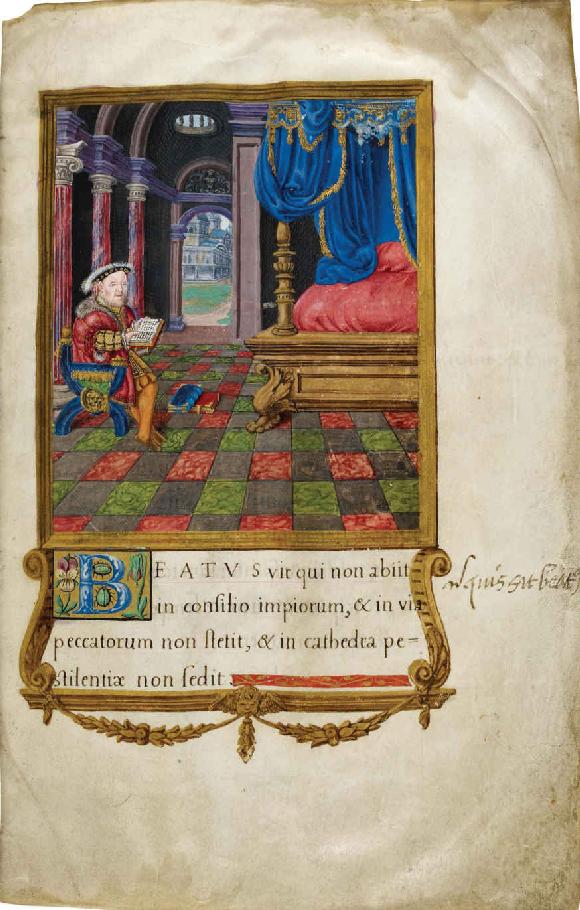 BEATVS vir qui non abiit
in conſilio impiorum, & in via
peccatorum non ſtetit, & in cathedra pe=
ſtilentiæ non ſedit
quis sit beatus